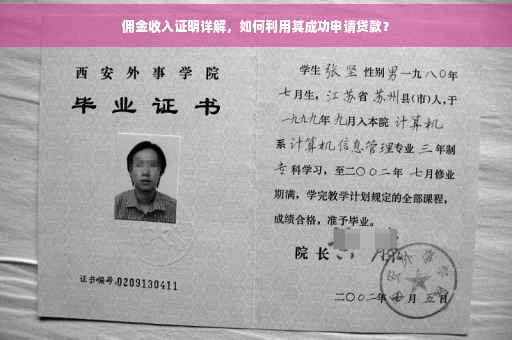 佣金收入证明详解，如何利用其成功申请贷款？
西安外事学院
毕业证书
证书编号:0209130411
学生 张坚 性别男一九八〇年
七月生，江苏省苏州县(市)人，于
一九九九年九月入本院 计算机
系计算机信息管理专业 三 年制
专科学习，至二〇〇二年 七月修业
期满，学完教学计划规定的全部课程，
成绩合格，准予毕业。
院 长
二〇〇二年 月 五日